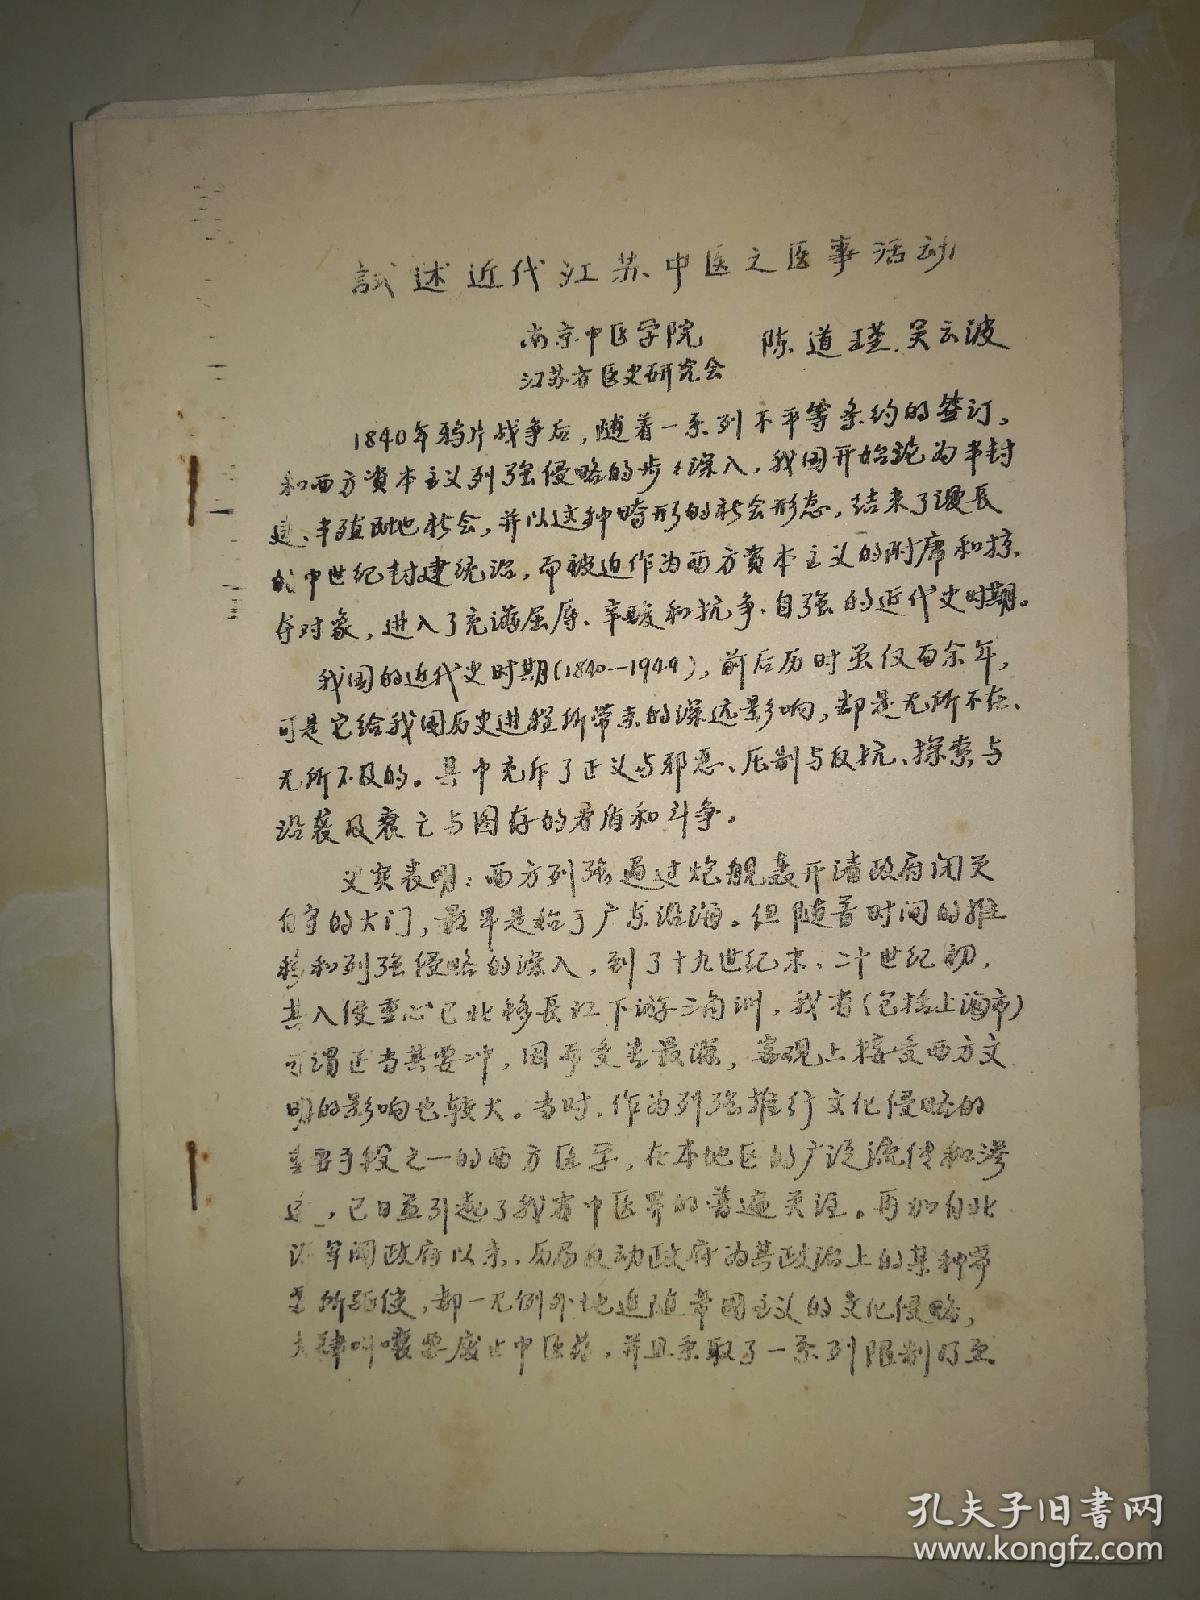 試述近代江苏中医之医事活动
南京中医学院
江苏省医史研究会
陈道瑾.吴云波
1840年鸦片战争后，随着一系列不平等条约的签订，
和西方資本主义列强侵略的步步深入，我国开始沦为半封
建、半殖民地社会，并以这种畸形的社会形态，结束了漫長
的中世纪封建统治，而被迫作为西方資本主义的附庸和掠
夺对象，进入了充满屈辱、辛酸和抗争、自强的近代史时期。
我国的近代史时期(1840—1949)，前后历时虽仅百余年，
可是它给我国历史进程所带来的深远影响，却是无所不在、
无所不及的。其中充斥了正义与邪恶、压制与反抗、探索与
沿袭及衰亡与图存的矛盾和斗争。
史实表明：西方列强通过炮舰轰开清政府闭关
自守的大门，最早是始于广东沿海。但随着时间的推
移和列强侵略的深入，到了十九世纪末、二十世纪初，
其入侵重心已北移長江下游三角洲，我省(包括上海市)
可谓正当其要冲，因而受害最深，客观上接受西方文
明的影响也较大。当时，作为列强推行文化侵略的
重要手段之一的西方医学，在本地区的广泛流传和渗
，已日益引起了我省中医界的普遍关注。再加自北
洋军阀政府以来，历届反动政府为其政治上的某种需
要所驱使，都一无例外地追随帝国主义的文化侵略，
大肆叫嚷要废止中医药，并且采取了一系列限制乃至
孔夫子旧书网
www.kongfz.com